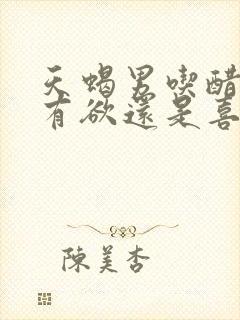 天蝎男喫醋
有欲還是喜
陳美杏